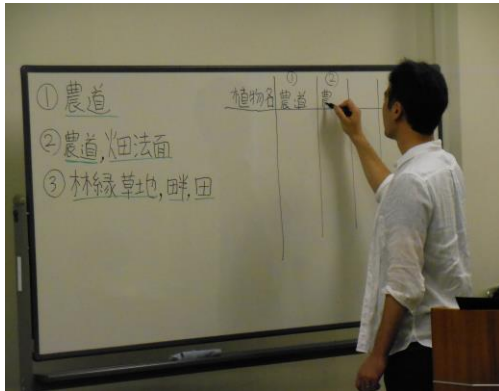 ① 農道
② 農道,畑法面
③ 林縁草地,畔,田
① ②
植物名 農道 農